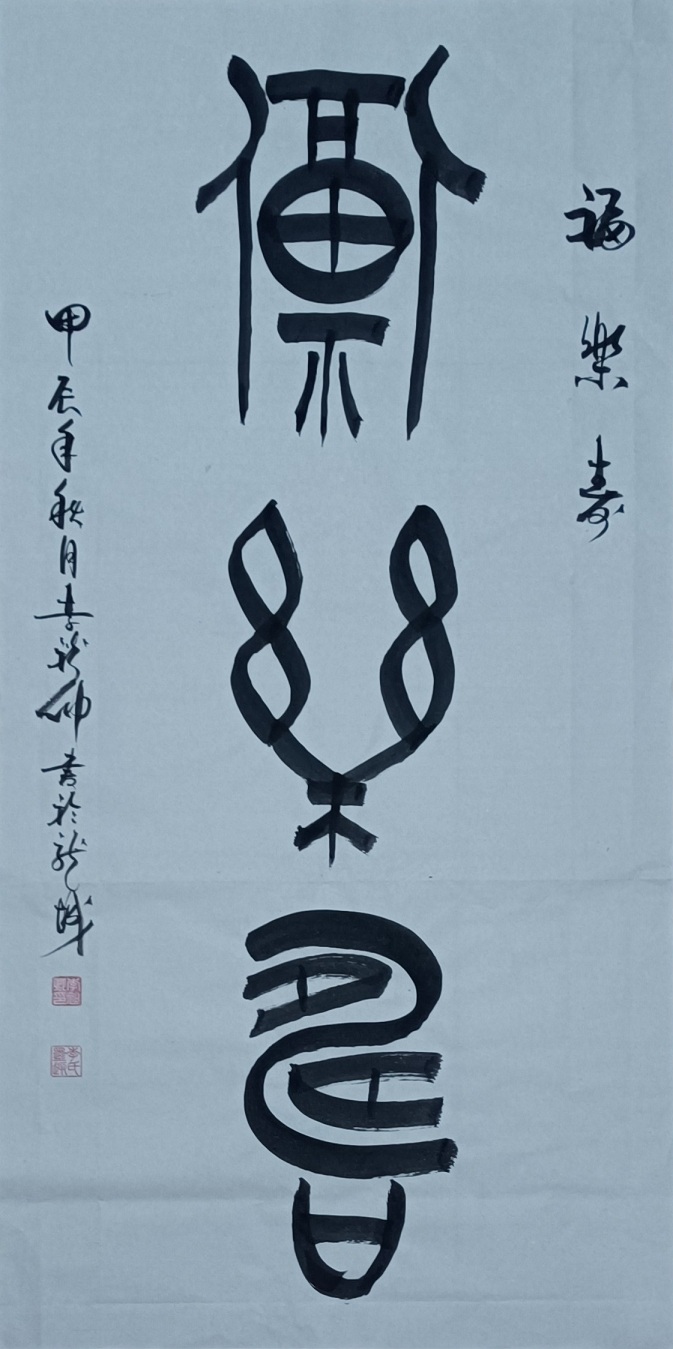 福樂壽
福樂壽
甲辰年秋月李龍仙書於龍城